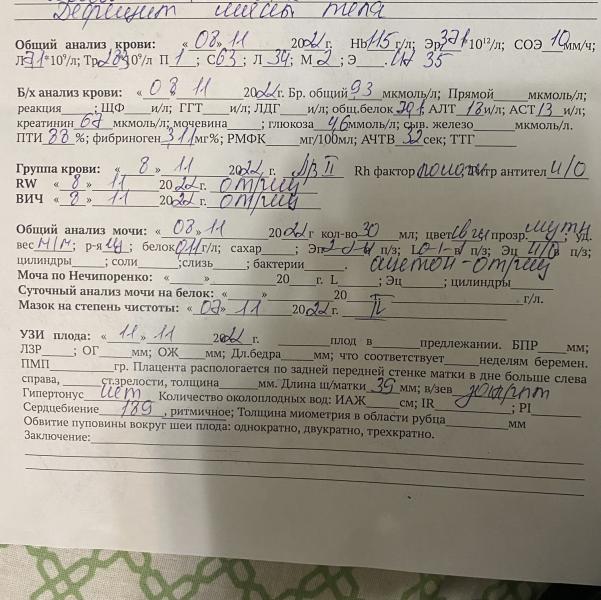 Дефицит массы тела
Общий анализ крови: « 08 » 11 2022 г. Hb 115 г/л; Эр 3,71 10¹²/л; СОЭ 10 мм/ч;
Л 7,1*10⁹/л; Тр 10⁹/л П 1; С 63; Л 34; М 2; Э Ht 35
Б/х анализ крови: « 08 11 2022 г. Бр. общий 9,3 мкмоль/л; Прямой мкмоль/л;
реакция ; ЩФ и/л; ГГТ и/л; ЛДГ и/л; общ.белок 79,1, АЛТ 18 и/л; АСТ 13 и/л;
креатинин 67 мкмоль/л; мочевина ; глюкоза 4,6 ммоль/л; сыв. железо мкмоль/л.
ПТИ 88 %; фибриноген 311 мг%; РМФК мг/100мл; АЧТВ 32 сек; ТТГ
Группа крови: « 8 » 11 2022 г. II Rh фактор полож, Титр антител н/о
RW « 8 » 11 2022 г. отриц
ВИЧ « 8 » 11 2022 г. отриц
Общий анализ мочи: « 08 » 11 2022 г кол-во 30 мл; цвет прозр. мутн; уд.
вес м/м; р-я ; белок г/л; сахар ; Эп п/з; L 0-1- в п/з; Эц н/о в п/з;
цилиндры ; соли ; слизь ; бактерии . ацетон - отриц
Моча по Нечипоренко: « » 20 г. L ; Эц ; цилиндры
Суточный анализ мочи на белок: « » 20 г/л.
Мазок на степень чистоты: « 07 » 11 2022 г. II
УЗИ плода: « 11 » 11 2022 г. плод в предлежании. БПР мм;
ЛЗР ; ОГ мм; ОЖ мм; Дл.бедра мм; что соответствует неделям беремен.
ПМП гр. Плацента распологается по задней передней стенке матки в дне больше слева
справа, ст.зрелости, толщина мм. Длина ш/матки 39 мм; в/зев закрыт
Гипертонус нет Количество околоплодных вод: ИАЖ см; IR ; PI
Сердцебиение , ритмичное; Толщина миометрия в области рубца мм
Обвитие пуповины вокруг шеи плода: однократно, двукратно, трехкратно.
Заключение: